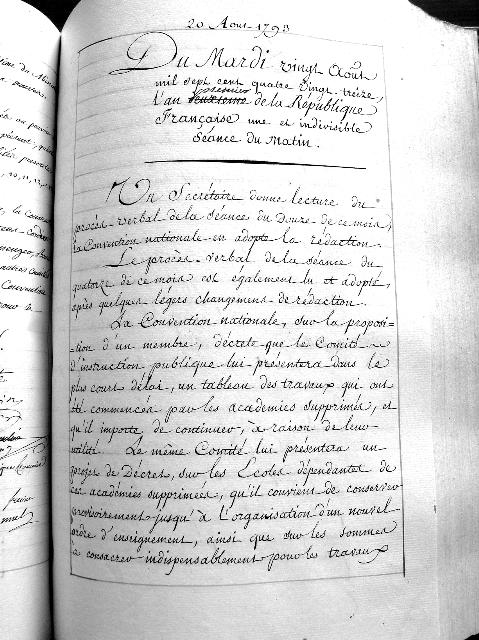 20 Aout 1793
Du Mardi vingt Août
mil sept cent quatre vingt treize,
premier
l'an deuxieme de la République
Française une et indivisible
Séance du Matin.
Un Secrétaire donne lecture du
procès verbal de la séance du Douze de ce mois,
la Convention nationale en adopte la rédaction.
Le procès verbal de la séance du
quatorze de ce mois est également lu et adopté,
après quelques légers changemens de rédaction.
La Convention nationale, sur la proposi-
tion d'un membre, décrete que le Comité
d'instruction publique lui présentera dans le
plus court délai, un tableau des travaux qui ont
été commencés par les académies supprimées, et
qu'il importe de continuer, à raison de leur
utilité. Le même Comité lui présentera un
projet de Décret, sur les Ecoles dépendantes de
ces académies supprimées, qu'il convient de conserver
provisoirement jusqu'à l'organisation d'un nouvel
ordre d'enseignement, ainsi que sur les sommes
a consacrer indispensablement pour les travaux